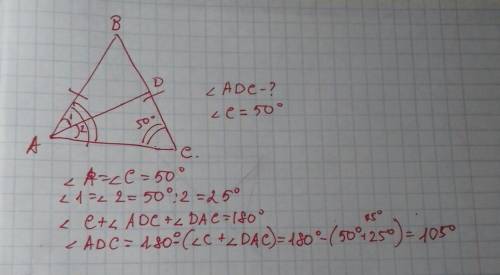 B
D
1
2
50°
A
C.
∠ADC-?
∠C=50°
∠A=∠C=50°
∠1=∠2=50°:2=25°
∠C+∠ADC+∠DAC=180°
75°
∠ADC=180°-(∠C+∠DAC)=180°-(50°+25°)=105°